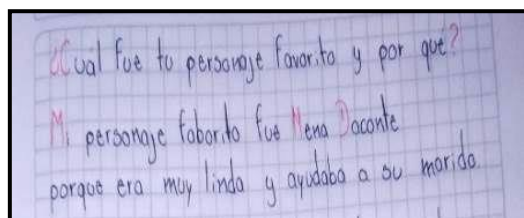 ¿Cual fue tu personaje favorito y por qué?
Mi personaje faborito fue Nena Daconte
porque era muy linda y ayudaba a su marido.